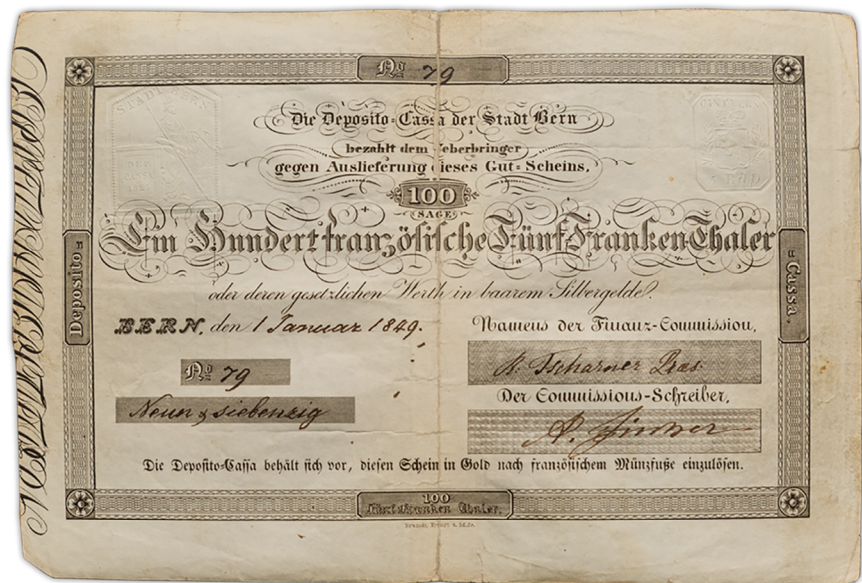 No 79
STADT BERN
Die Deposito-Cassa der Stadt Bern
bezahlt dem Ueberbringer
gegen Auslieferung dieses Gut-Scheins,
100
(SAGE)
Ein Hundert französische Fünf Franken Thaler
oder deren gesetzlichen Werth in baarem Silbergelde.
Deposito =
= Cassa.
BERN, den 1 Januar 1849.
Namens der Finanz-Commission,
No 79
Tscharner Präs.
Neun & siebenzig
Der Commissions-Schreiber,
Die Deposito-Cassa behält sich vor, diesen Schein in Gold nach französischem Münzfuße einzulösen.
100
Fünf Franken Thaler.